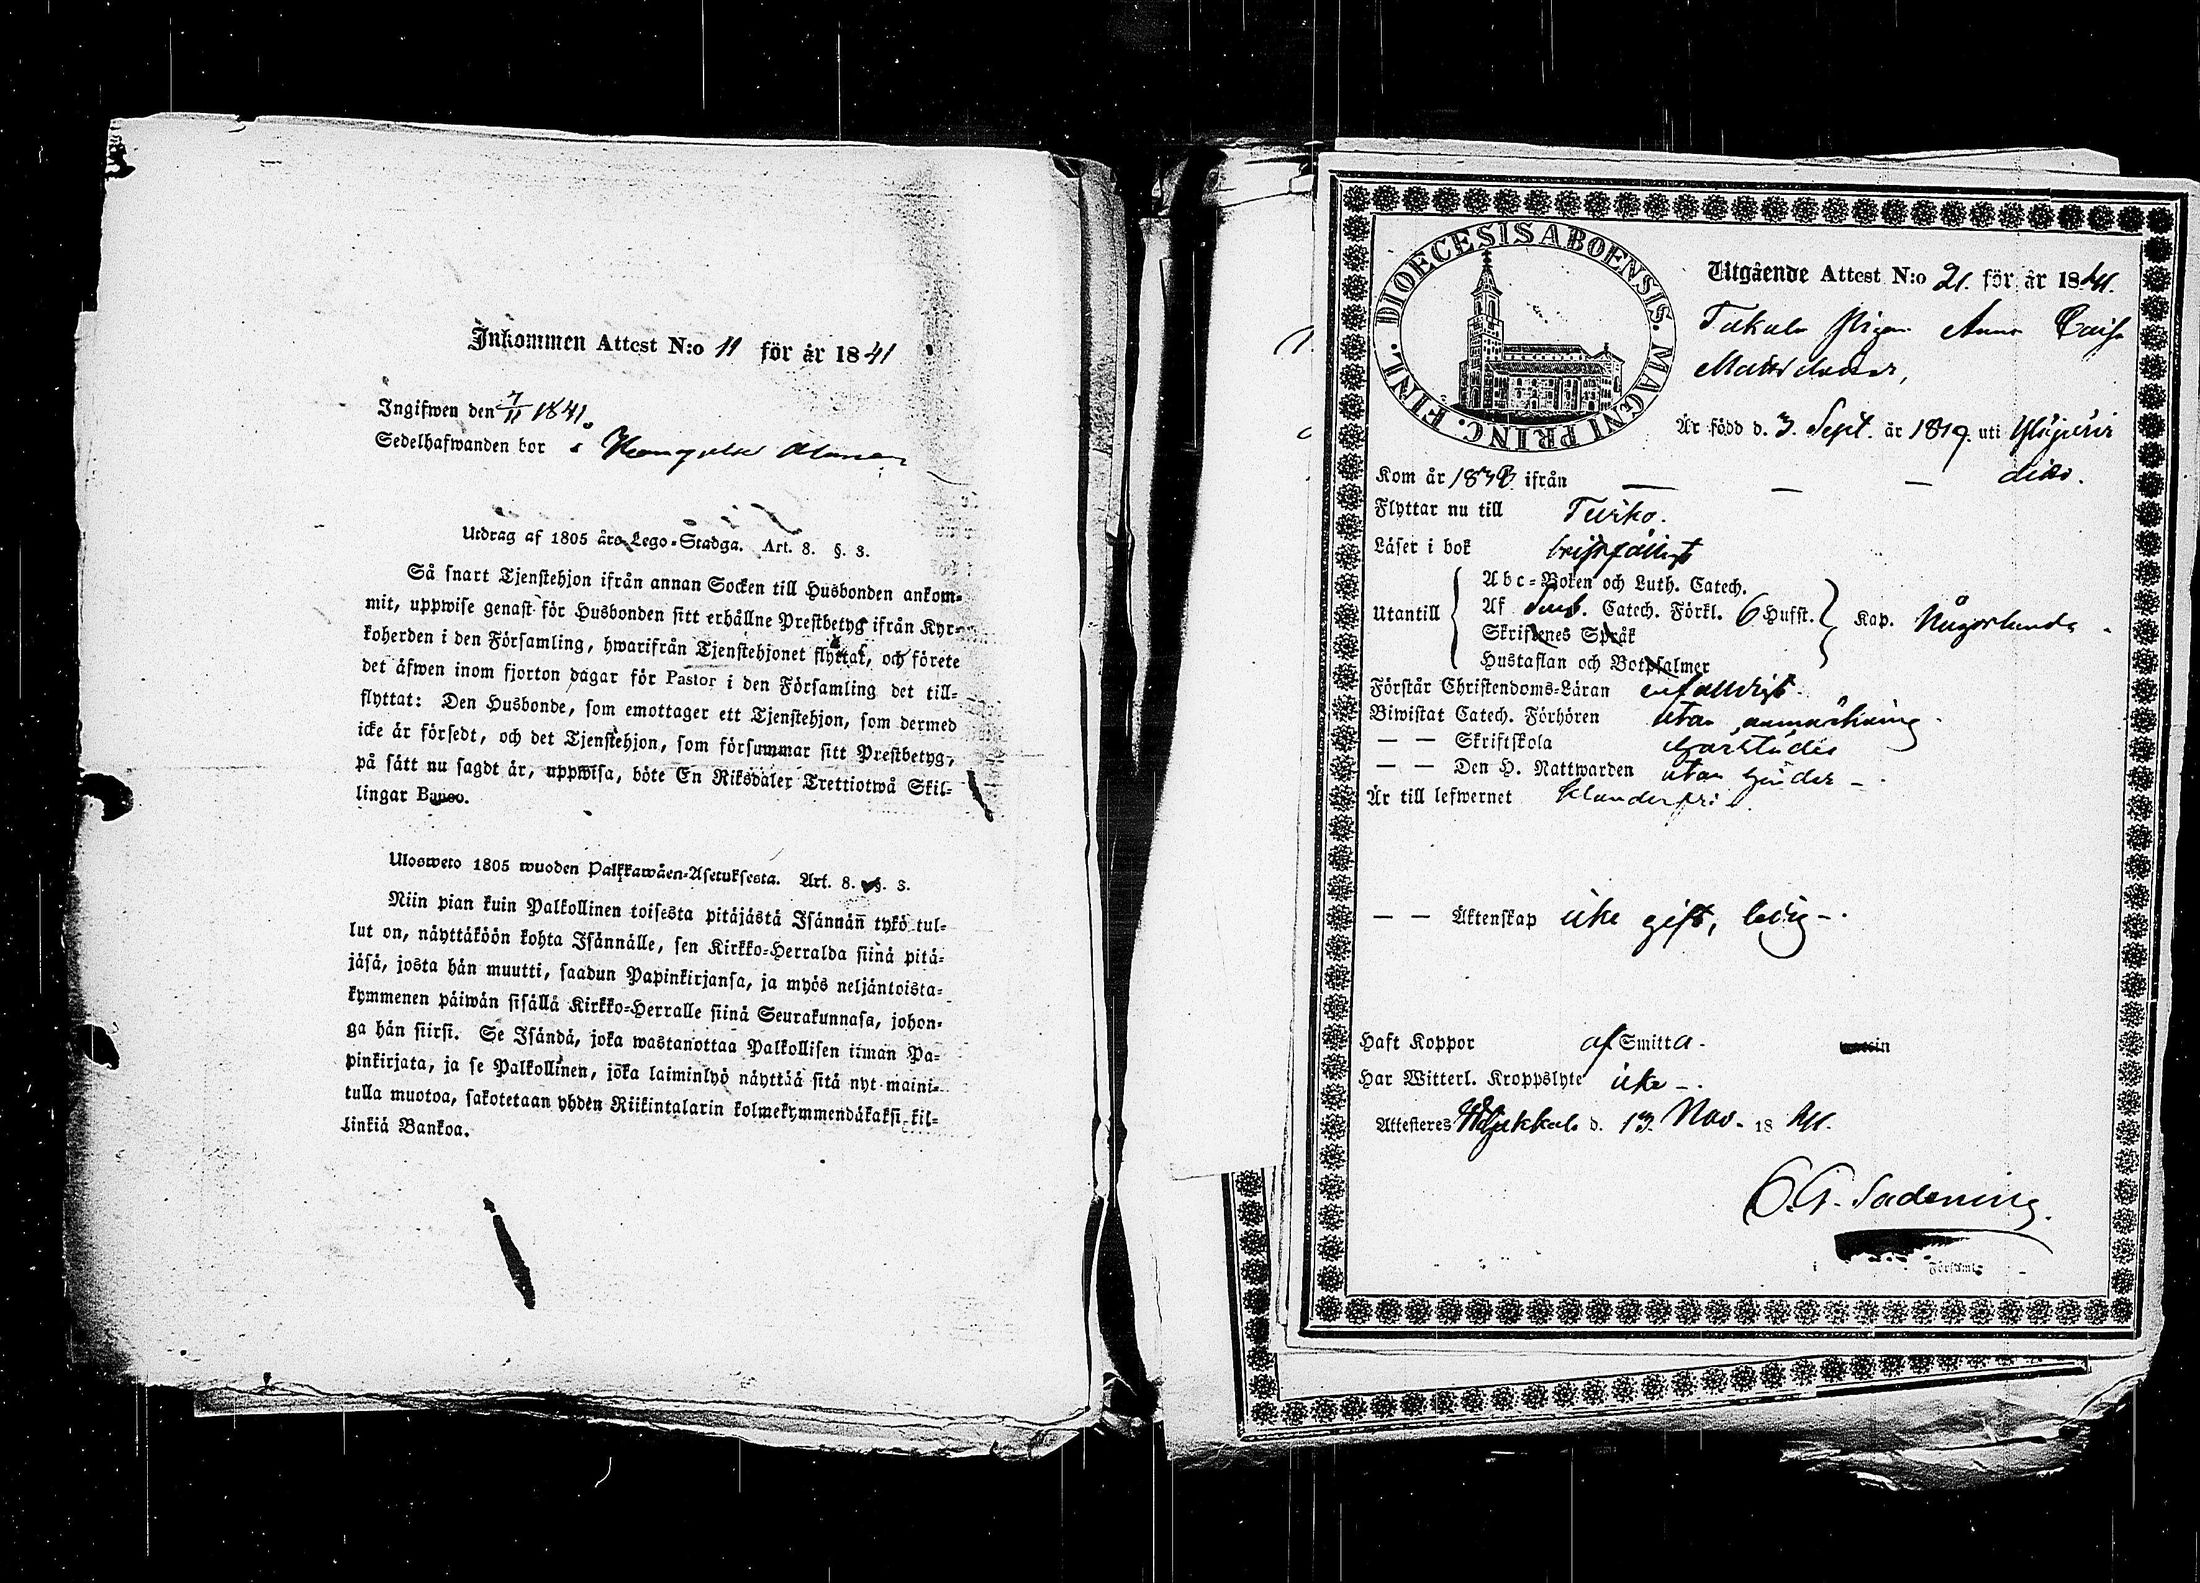 Inkommen Attest N:o 11 för år 1841
Ingifwen den 7/11 1841.
Sedelhafwanden bor i
Utdrag af 1805 års Lego-Stadga. Art. 8. §. 3.
Så snart Tjenstehjon ifrån annan Socken till Husbonden ankom-
mit, uppwise genast för Husbonden sitt erhållne Prestbetyg ifrån Kyr-
koherden i den Församling, hwarifrån Tjenstehjonet flyttat, och förete
det äfwen inom fjorton dagar för Pastor i den Församling det till-
flyttat: Den Husbonde, som emottager ett Tjenstehjon, som dermed
icke är försedt, och det Tjenstehjon, som försummar sitt Prestbetyg,
på sätt nu sagdt är, uppwisa, böte En Riksdaler Trettiotwå Skil-
lingar Banco.
Ulosweto 1805 wuoden Palkkawäen-Asetuksesta. Art. 8. §. 3.
Niin pian kuin Palkollinen toisesta pitäjästä Isännän̄ tykö tul-
lut on, näyttäköön kohta Isännälle, sen Kirkko-Herralda siinä pitä-
jäsä, josta hän muutti, saadun Papinkirjansa, ja myös neljäntoista-
kymmenen päiwän sisällä Kirkko-Herralle siinä Seurakunnasa, johon-
ga hän siirsi. Se Isändä, joka wastanottaa Palkollisen ilman Pa-
pinkirjata, ja se Palkollinen, joka laiminlyö näyttää sitä nyt maini-
tulla muotoa, sakotetaan yhden Riikintalarin kolmekymmendäkaksi kil-
linkiä Bankoa.
DIOECESIS ABOENSIS. MAGNI PRINC. FINL.
Utgående Attest N:o 21. för år 1841.
Pigan Anna Caisa
Mattsdotter,
Är född d. 3. Sept. år 1819. uti
Kom år ifrån — — —
Flyttar nu till
Läser i bok
Utantill
Abc-Boken och Luth. Catech.
Af Catech. Förkl. 6 Hufst. Kap. Någorlunda
Skriftenes Språk
Hustaflan och Botpsalmer
Förstår Christendoms-Läran enfaldigt
Biwistat Catech. Förhören utan anmärkning
— — Skriftskola
— — Den H. Nattwarden utan hinder
Är till lefwernet klanderfri
— — Äktenskap icke gift, ledig
Haft Koppor af Smitta
Har Witterl. Kroppslyte icke
Attesteres d. 13. Nov. 1841.
i Församl.